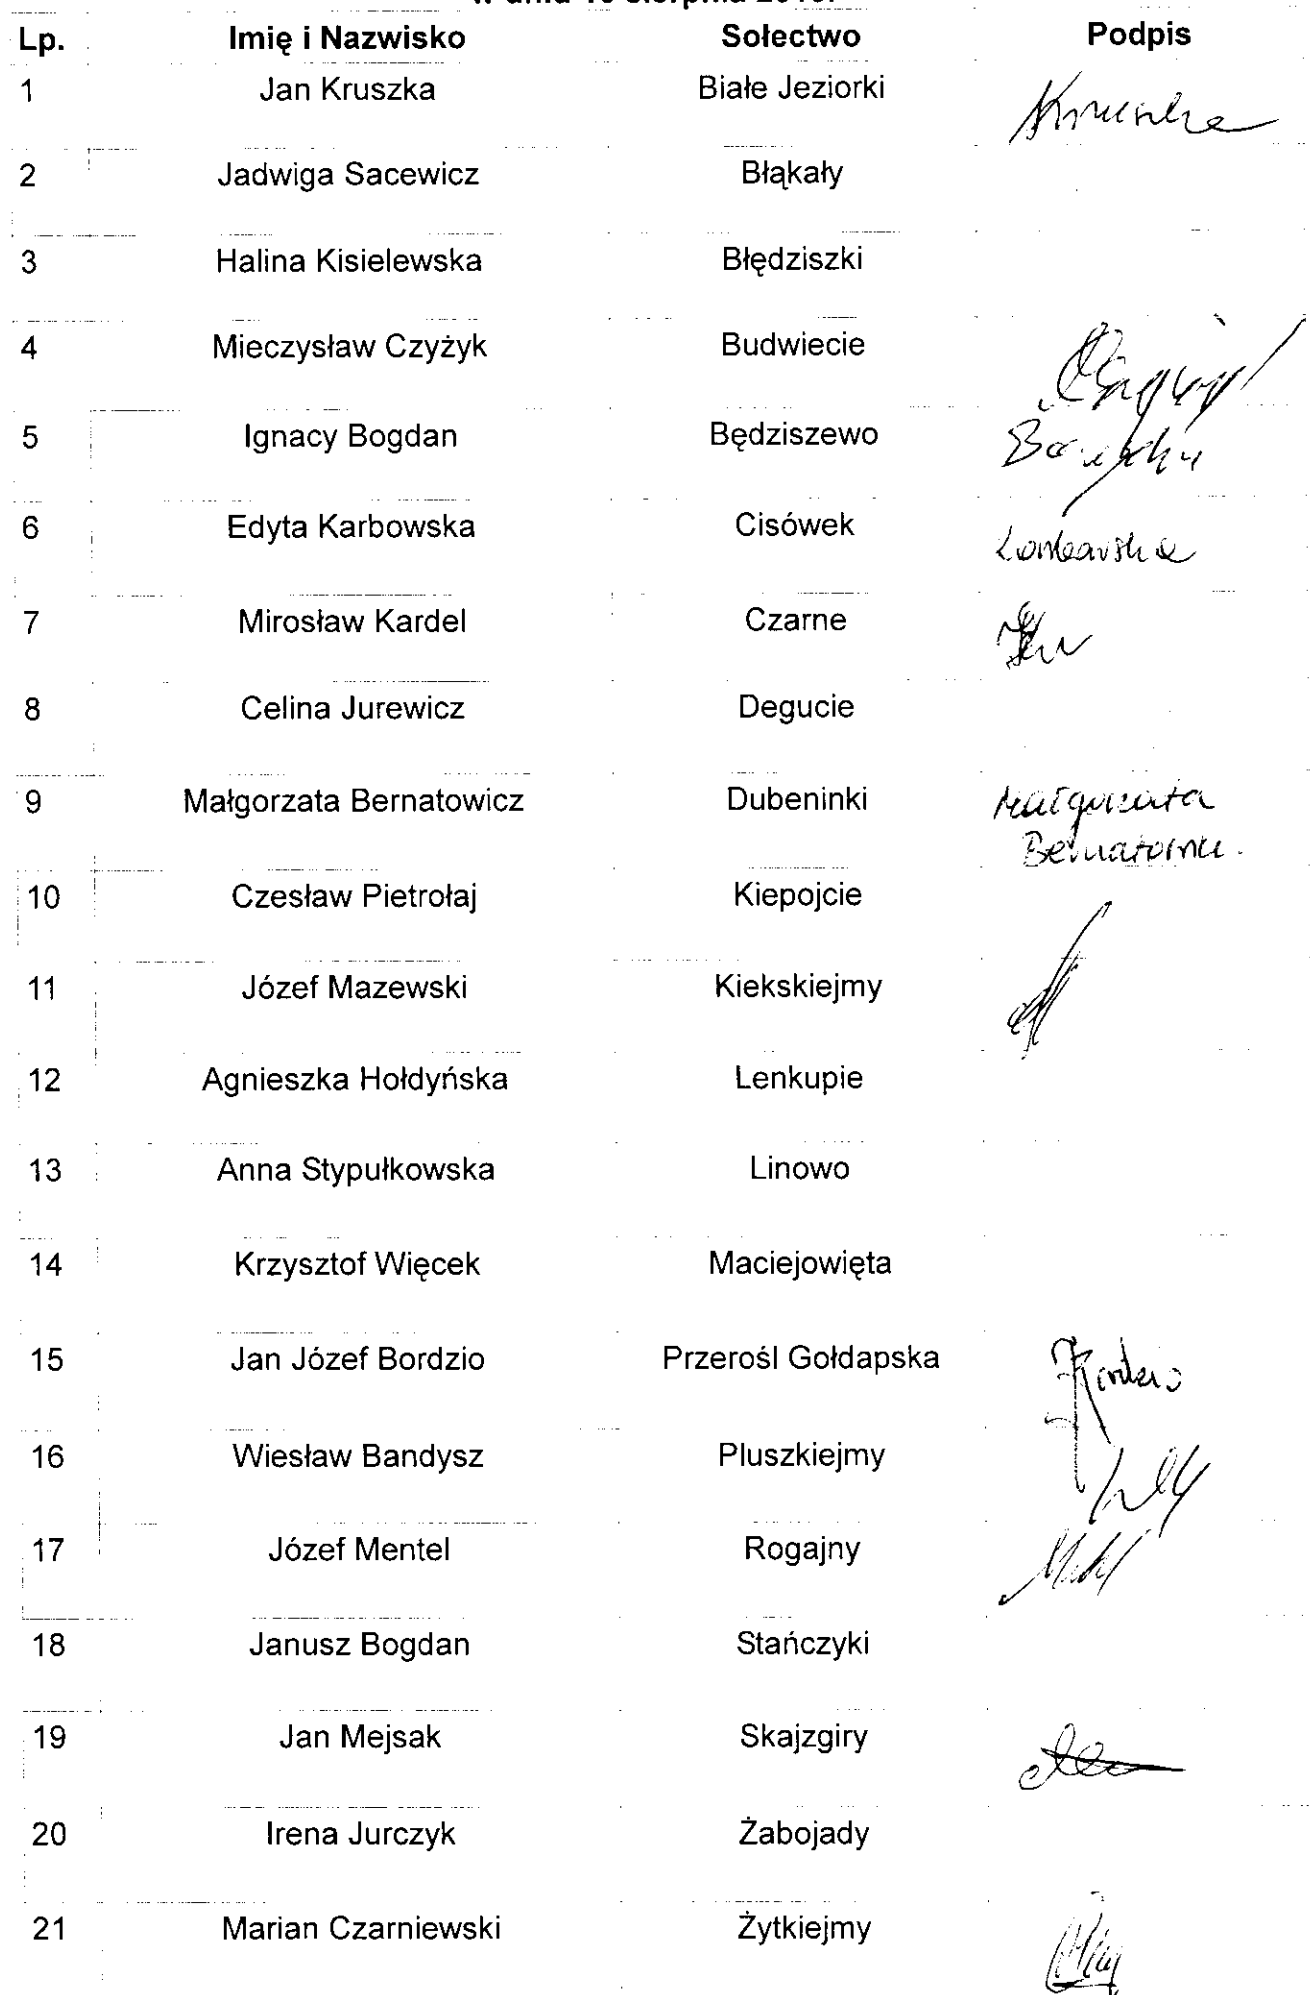 Lp. Imię i Nazwisko Sołectwo Podpis
1 Jan Kruszka Białe Jeziorki Kruszka
2 Jadwiga Sacewicz Błąkały
3 Halina Kisielewska Błędziszki
4 Mieczysław Czyżyk Budwiecie
5 Ignacy Bogdan Będziszewo
6 Edyta Karbowska Cisówek
7 Mirosław Kardel Czarne
8 Celina Jurewicz Degucie
9 Małgorzata Bernatowicz Dubeninki Małgorzata
10 Czesław Pietrołaj Kiepojcie
11 Józef Mazewski Kiekskiejmy
12 Agnieszka Hołdyńska Lenkupie
13 Anna Stypułkowska Linowo
14 Krzysztof Więcek Maciejowięta
15 Jan Józef Bordzio Przerośl Gołdapska
16 Wiesław Bandysz Pluszkiejmy
17 Józef Mentel Rogajny
18 Janusz Bogdan Stańczyki
19 Jan Mejsak Skajzgiry
20 Irena Jurczyk Żabojady
21 Marian Czarniewski Żytkiejmy